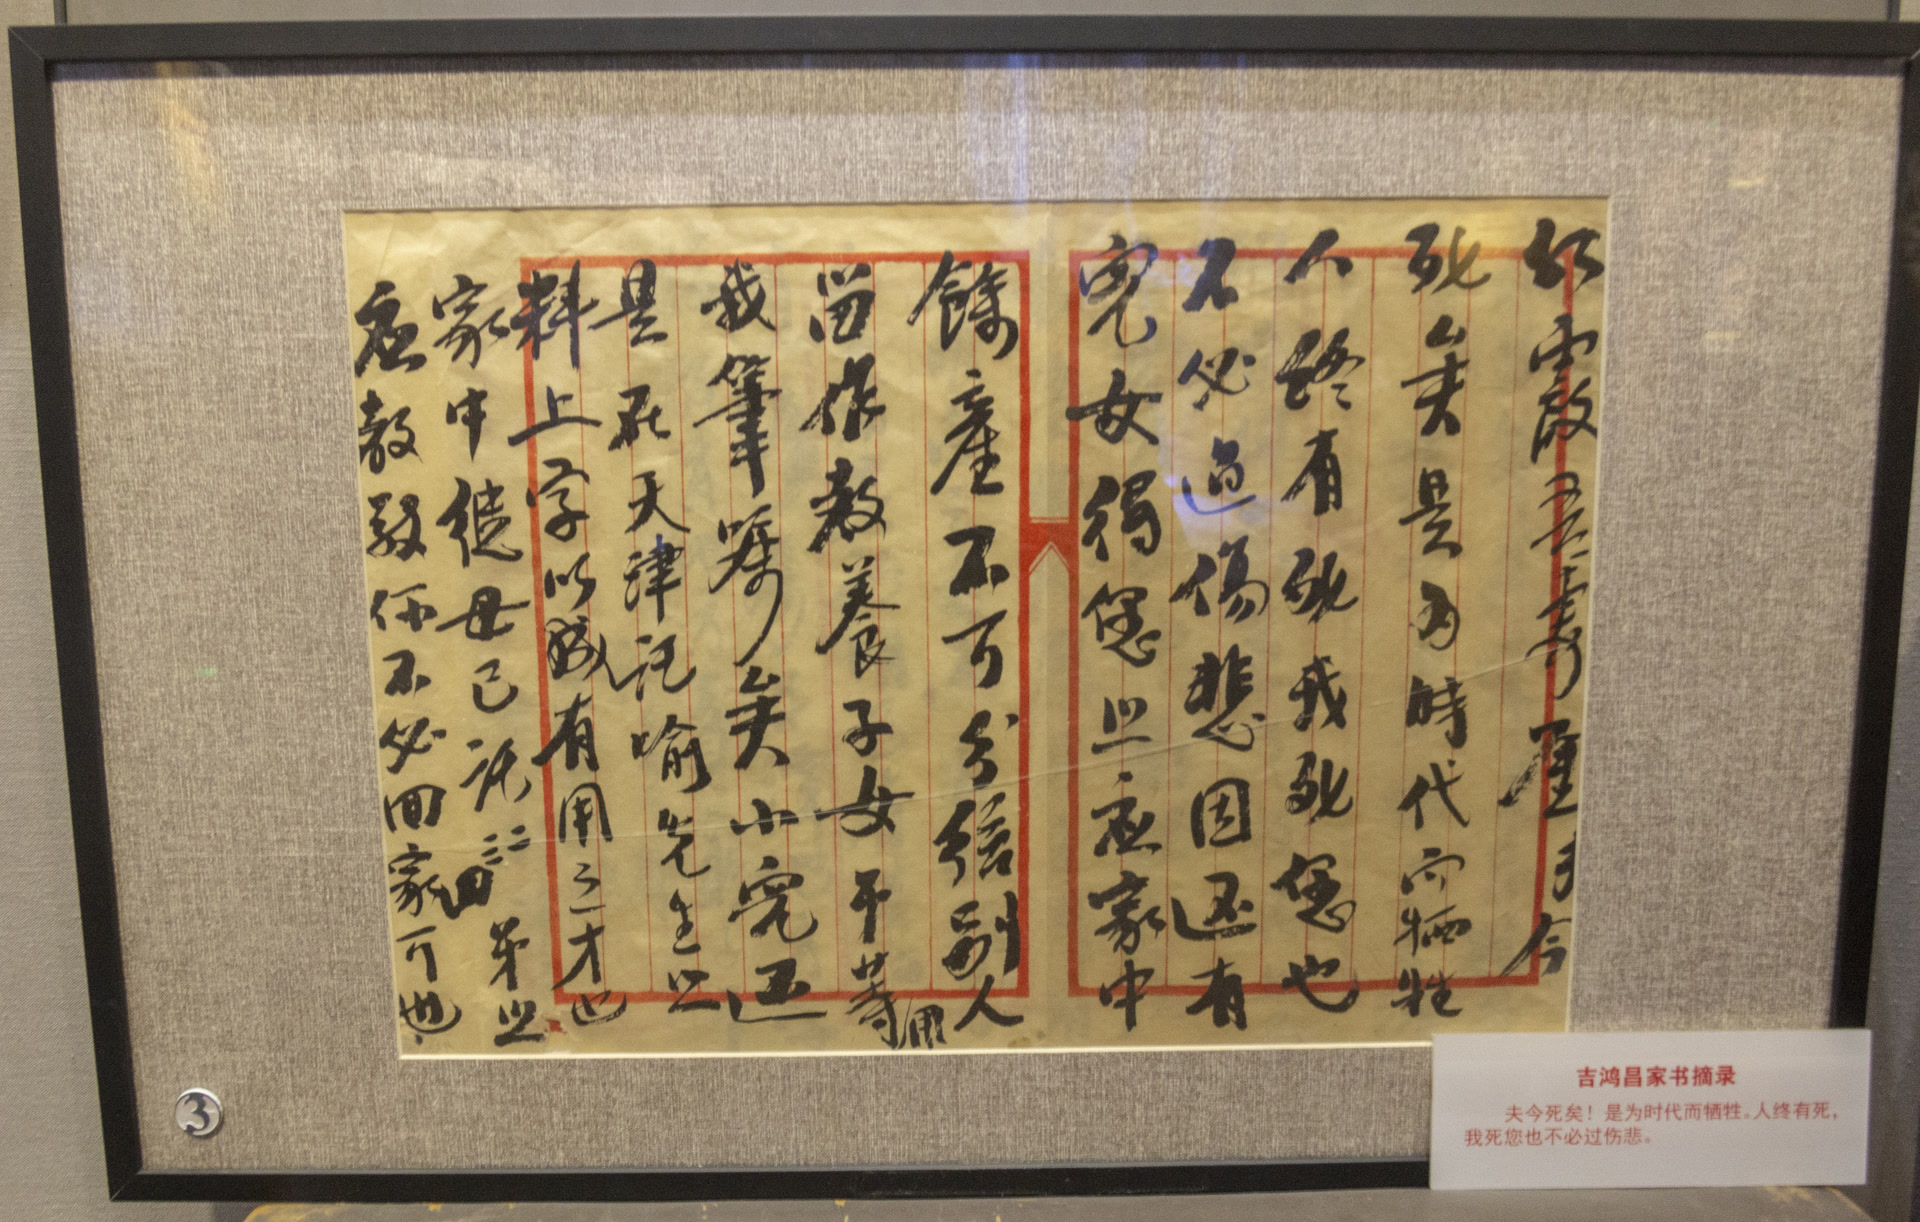 红霞吾妻鉴夫今
死矣是为時代而牺牲
人終有死我死您也
不必过傷悲因还有
児女得您照应家中
餘產不可分給别人
留作教養子女等用
我筆嘱矣小児还
是在天津託喻先生照
料上学以成有用之才也
家中继母已託二三四弟照
应教敬你不必回家可也
3
吉鸿昌家书摘录
夫今死矣！是为时代而牺牲。人终有死，
我死您也不必过伤悲。